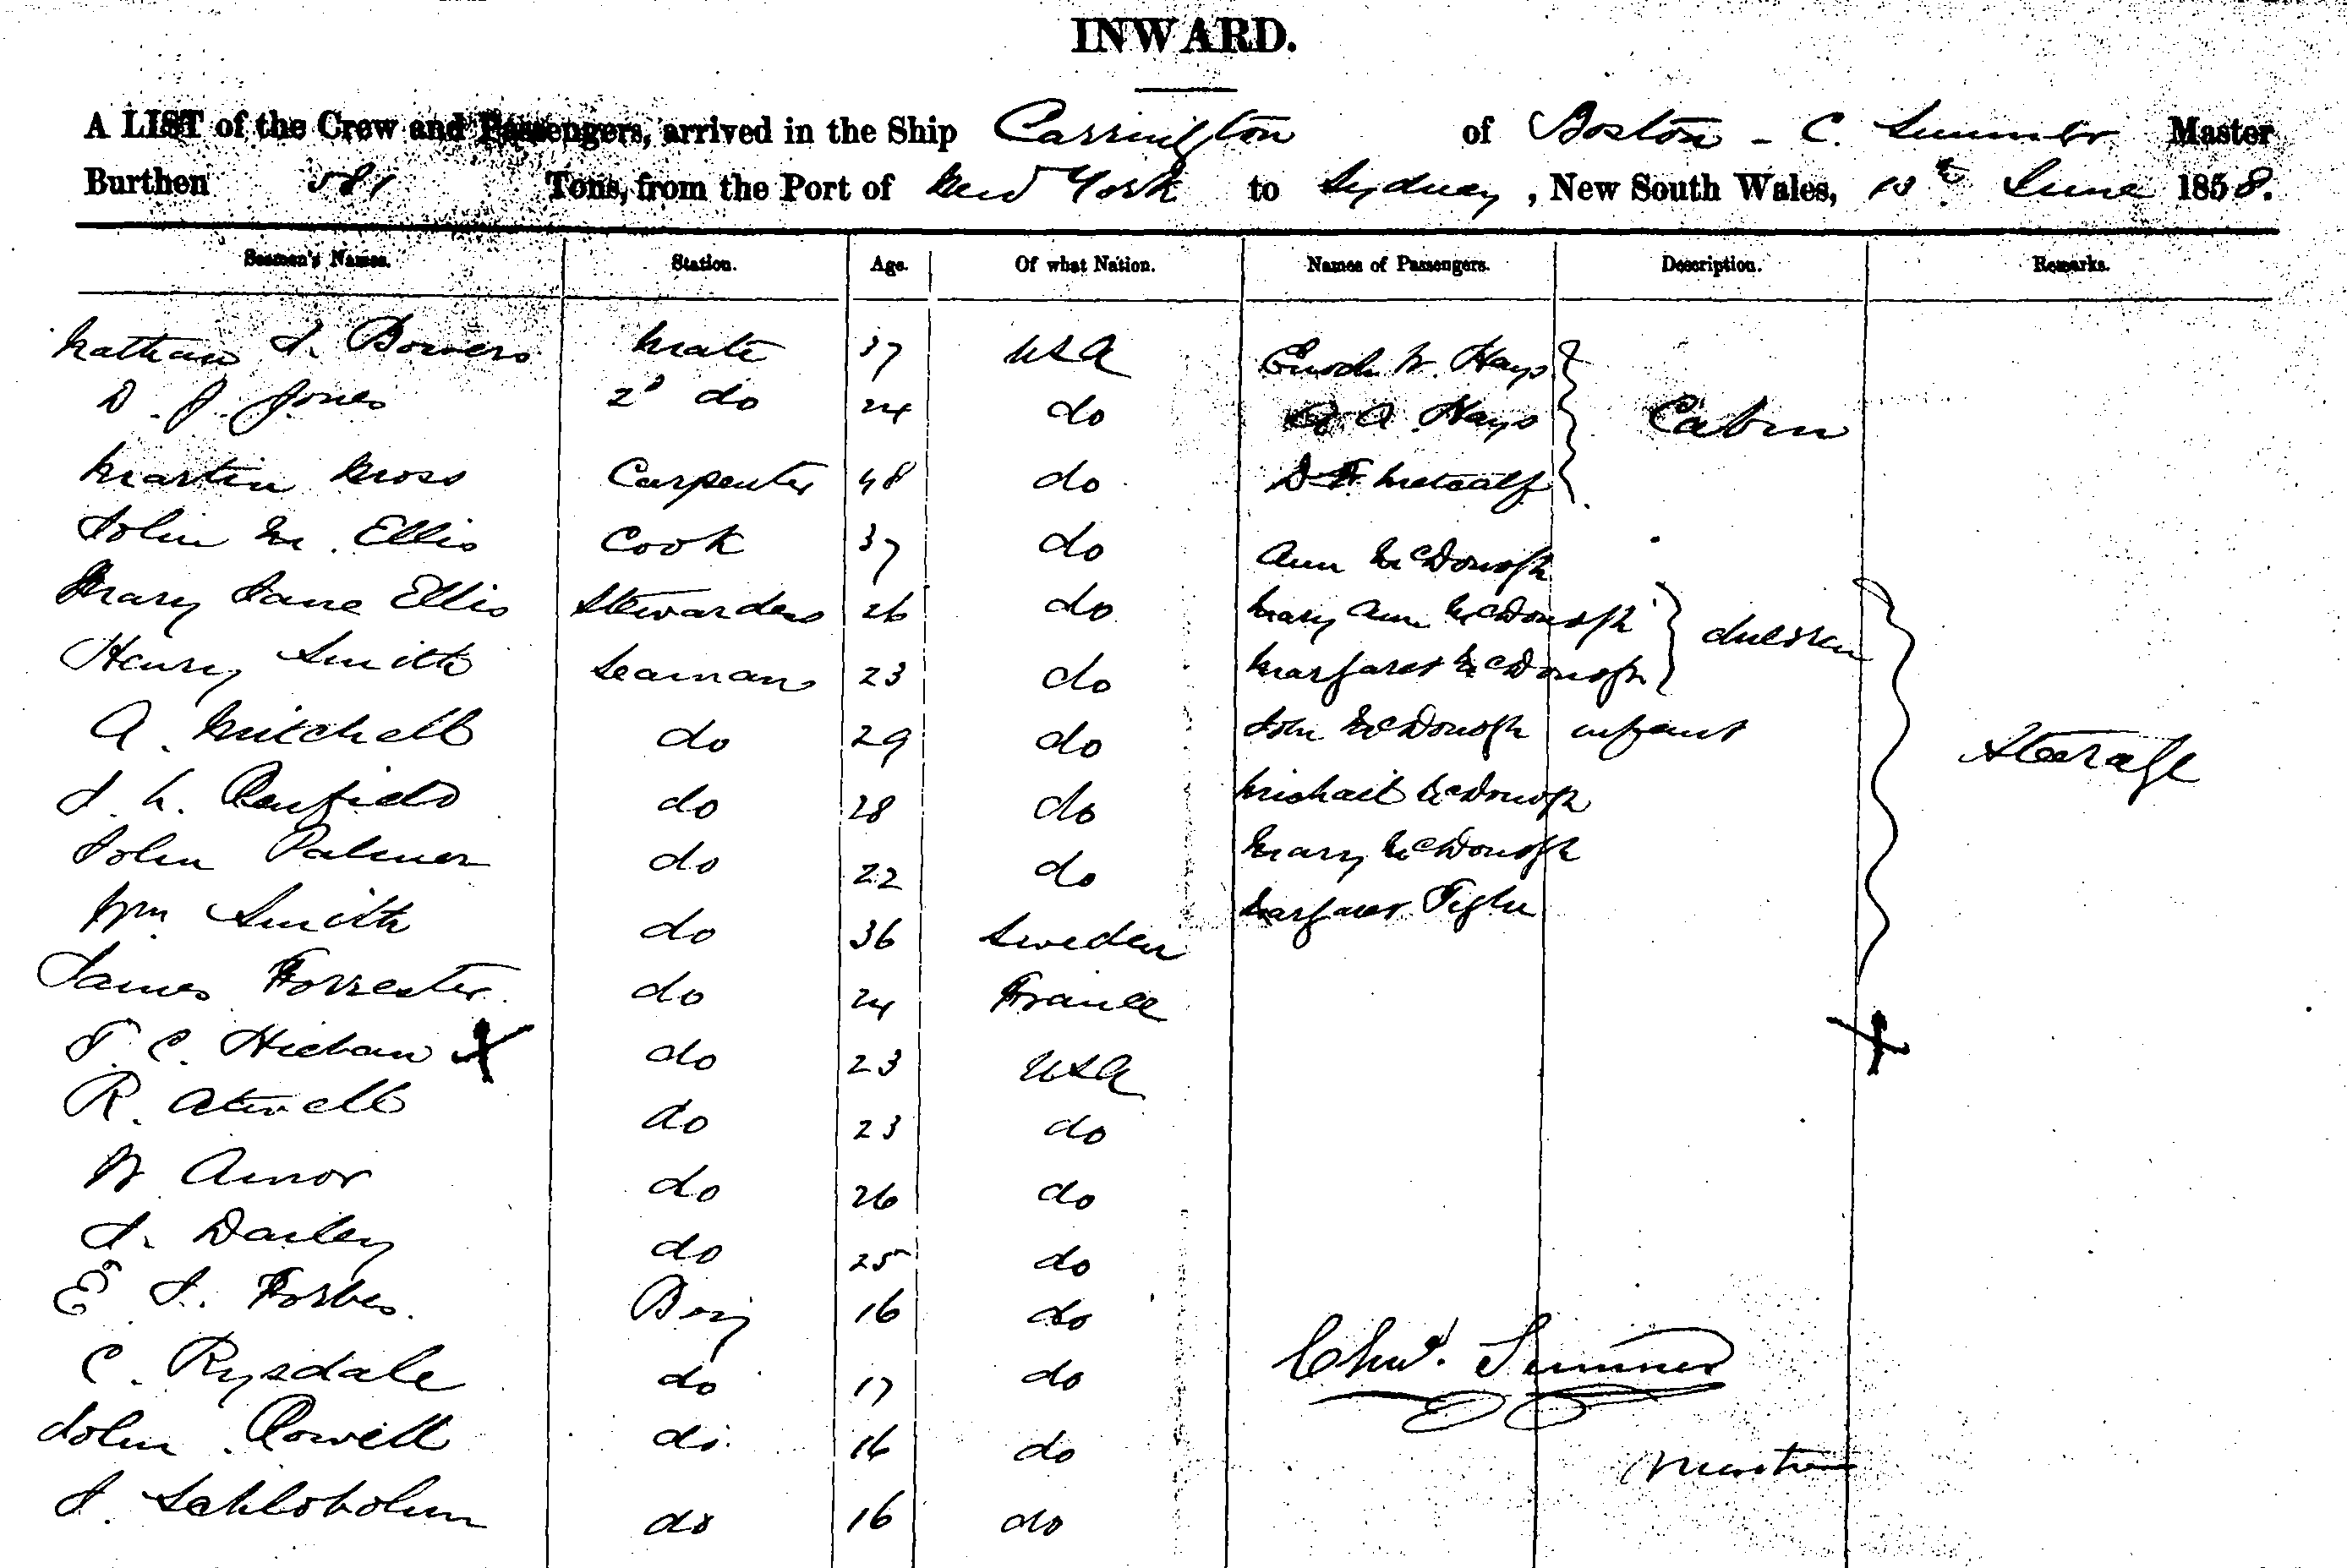 INWARD.
A LIST of the Crew and Passengers, arrived in the Ship Carrington of Boston - C. Sumner Master
Burthen 581 Tons, from the Port of New York to Sydney, New South Wales, 13th June 1858.
Seamen's Names. Station. Age. Of what Nation. Names of Passengers. Description. Remarks.
Nathan J. Bowers Mate 37 USA Enoch W. Hays
D. J. Jones 2d do 24 do A. Hays Cabin
Martin Moss Carpenter 48 do D F. Metcalf
John M. Ellis Cook 37 do Ann McDonogh
Mary Jane Ellis Stewardess 26 do Mary Ann McDonogh children
Henry Smith Seaman 23 do Margaret McDonogh
A. Mitchell do 29 do John McDonogh infant Steerage
J. L. Penfield do 28 do Michail McDonogh
John Palmer do 22 do Mary McDonogh
Wm Smith do 36 Sweden Margaret Tighe
James Forrester do 24 France
T. C. do 23 USA
R. Atwell do 23 do
W Amor do 26 do
J. Dailey do 25 do
E. J. Forbes. Boy 16 do
C. Rysdale do 17 do Chas. Sumner
John Powell do 16 do Master
J. Schloholm do 16 do